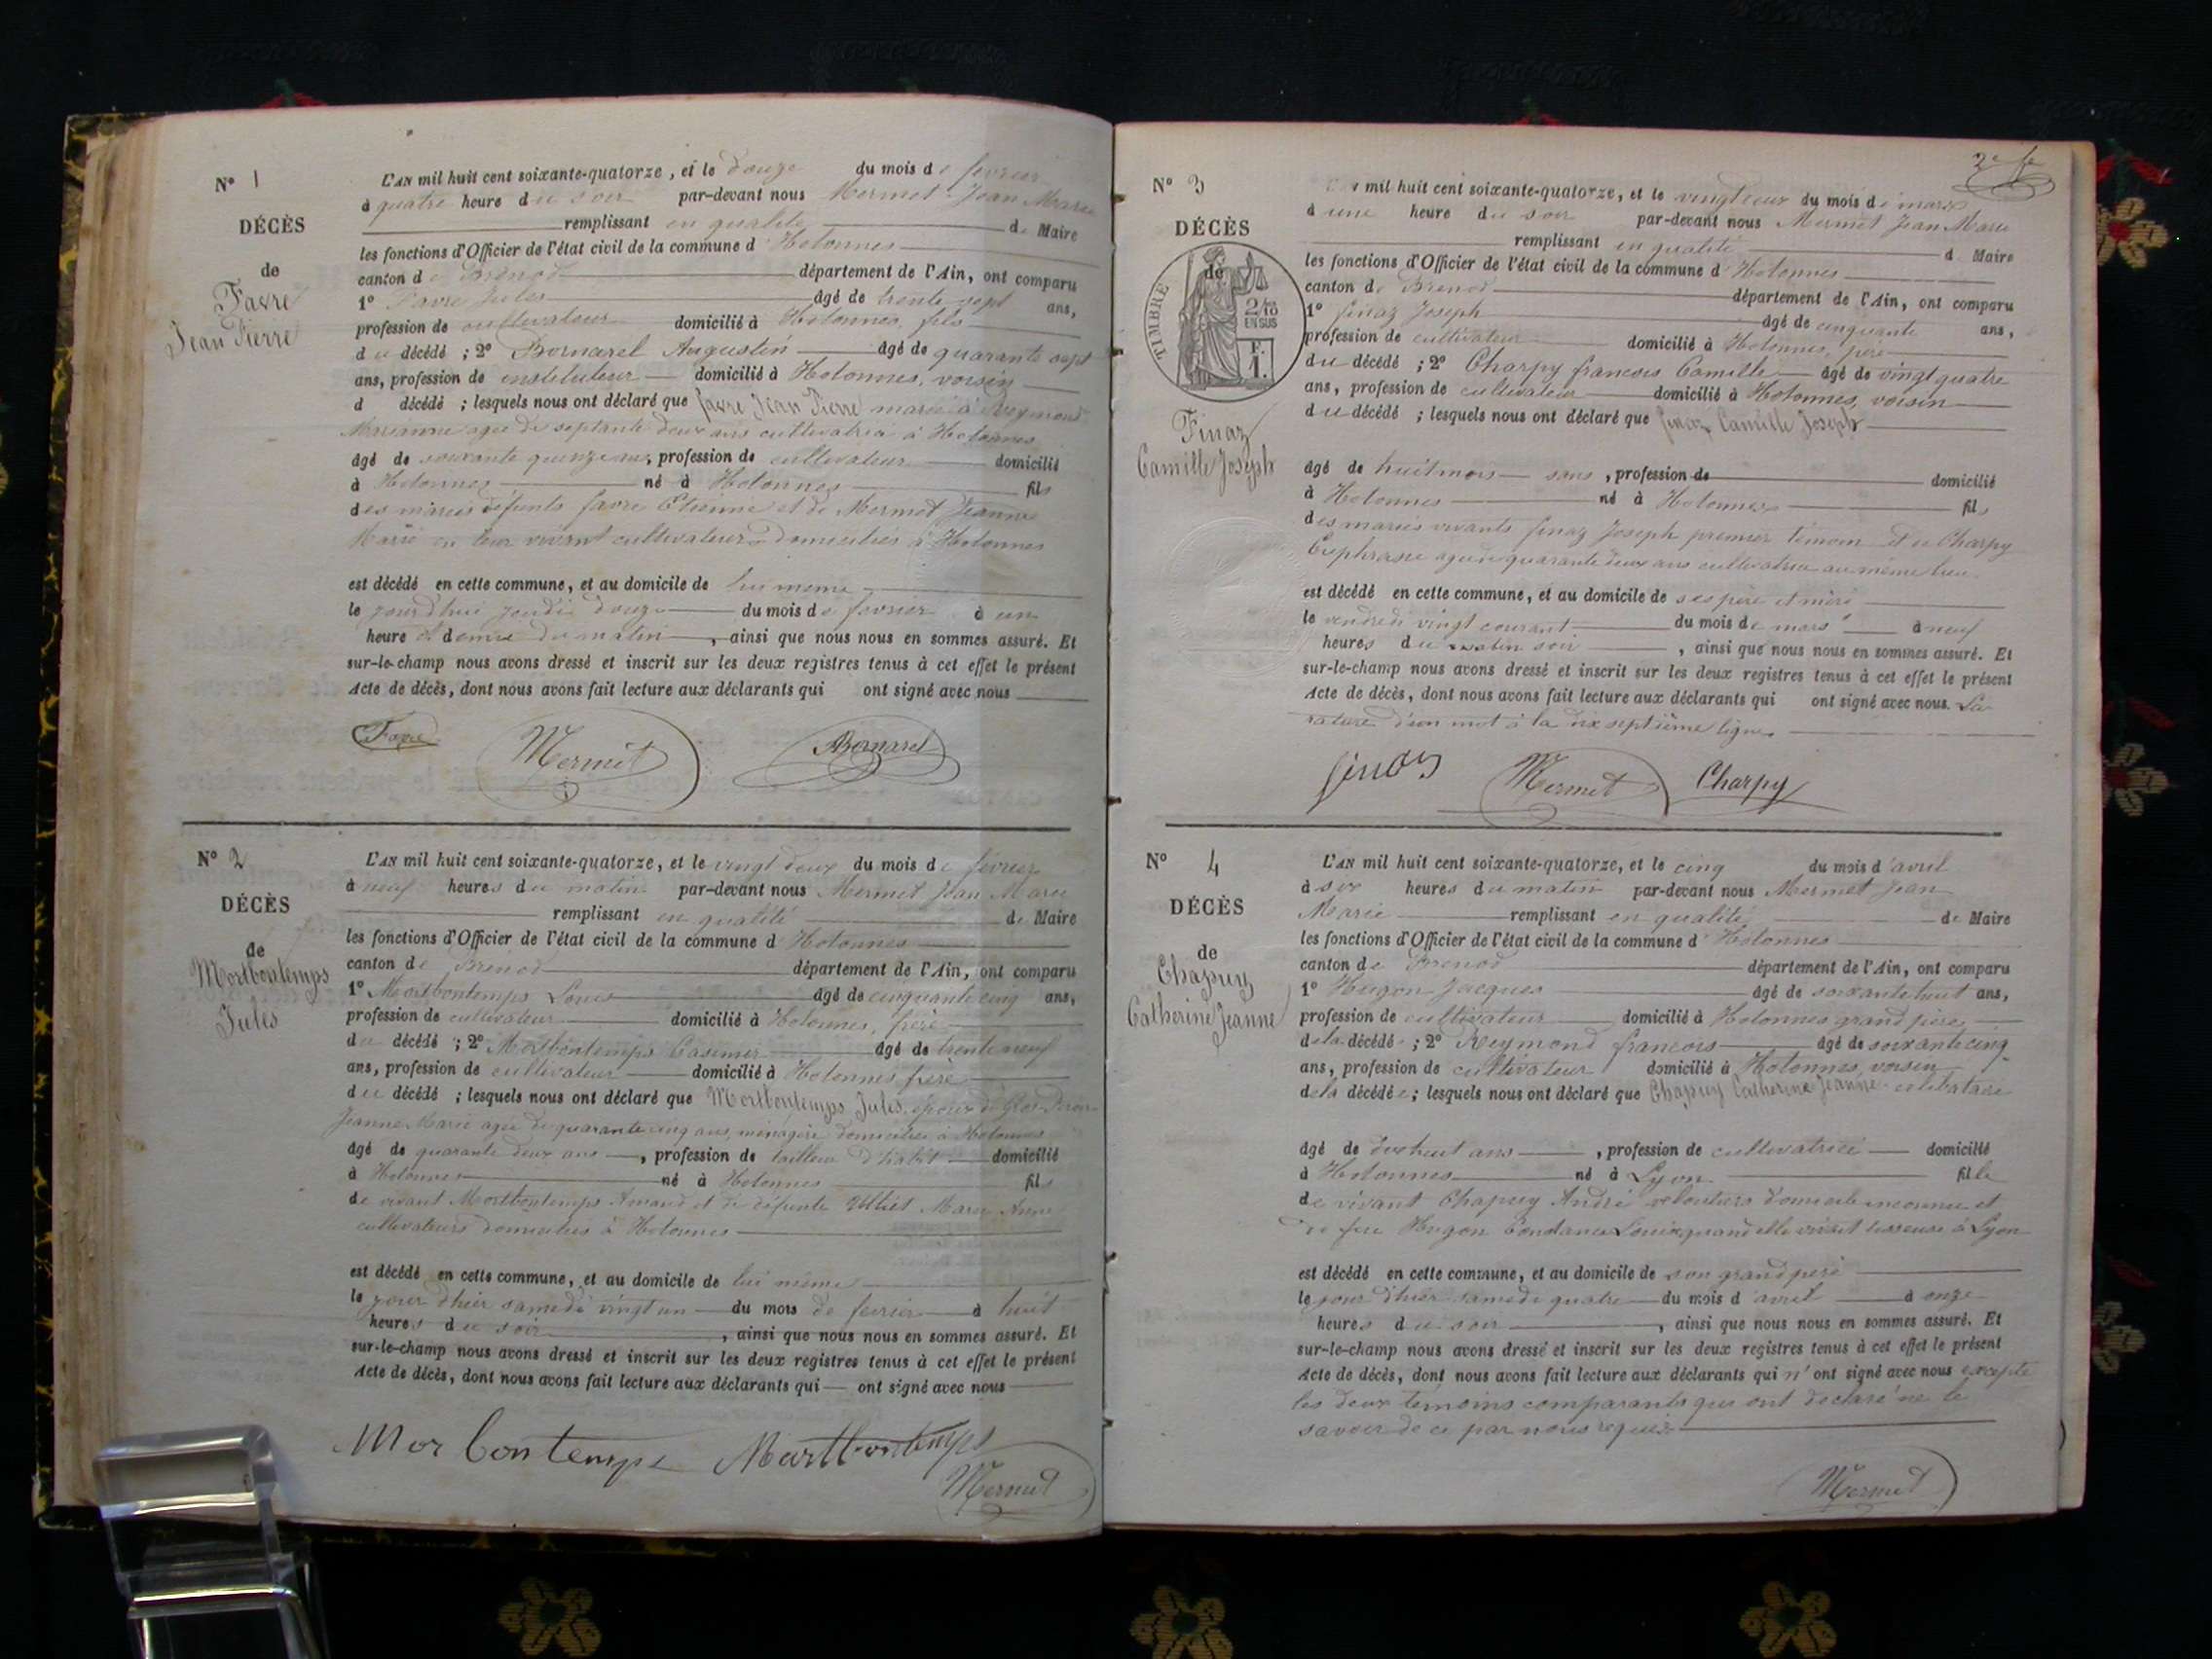 N° 1
DÉCÈS
de
Favre
Jean Pierre
L'AN mil huit cent soixante-quatorze, et le douze du mois de fevrier
à quatre heure du soir par-devant nous Mermet Jean Marie
remplissant en qualité de Maire
les fonctions d'Officier de l'état civil de la commune d'Hotonnes
canton de Brenod département de l'Ain, ont comparu
1° Favre Jules âgé de trente sept ans,
profession de cultivateur domicilié à Hotonnes, fils
du décédé ; 2° Bornarel Augustin âgé de quarante sept
ans, profession de instituteur domicilié à Hotonnes, voisin
d décédé ; lesquels nous ont déclaré que favre Jean Pierre marié à Reymond
Marianne agée de septante deux ans cultivatrice à Hotonnes
âgé de soixante quinze ans, profession de cultivateur domicilié
à Hotonnes né à Hotonnes fils
des mariés défunts favre Etienne et de Mermet Jeanne
Marie en leur vivant cultivateurs domiciliés à Hotonnes
est décédé en cette commune, et au domicile de lui meme
le jourdhui jeudi douze du mois de fevrier à un
heure et demie du matin, ainsi que nous nous en sommes assuré. Et
sur-le-champ nous avons dressé et inscrit sur les deux registres tenus à cet effet le présent
Acte de décès, dont nous avons fait lecture aux déclarants qui ont signé avec nous
Favre Mermet Bornarel
N° 2
DÉCÈS
de
Mortbontemps
Jules
L'AN mil huit cent soixante-quatorze, et le vingt deux du mois de fevrier
à neuf heures du matin par-devant nous Mermet Jean Marie
remplissant en qualité de Maire
les fonctions d'Officier de l'état civil de la commune d Hotonnes
canton de Brenod département de l'Ain, ont comparu
1° Mortbontemps Louis âgé de cinquante cinq ans,
profession de cultivateur domicilié à Hotonnes, frère
du décédé ; 2° Mortbontemps Casimir âgé de trente neuf
ans, profession de cultivateur domicilié à Hotonnes frère
du décédé ; lesquels nous ont déclaré que Mortbontemps Jules, époux de
Jeanne Marie agée de quarante cinq ans, ménagère domiciliés à Hotonnes
âgé de quarante deux ans, profession de tailleur d'habit domicilié
à Hotonnes né à Hotonnes fils
de vivant Mortbontemps Armand et de défunte Marie Anne
cultivateurs domiciliés à Hotonnes
est décédé en cette commune, et au domicile de lui meme
le jour d'hier samedi vingt un du mois de fevrier à huit
heures du soir, ainsi que nous nous en sommes assuré. Et
sur-le-champ nous avons dressé et inscrit sur les deux registres tenus à cet effet le présent
Acte de décès, dont nous avons fait lecture aux déclarants qui ont signé avec nous
Morbontemps Mortbontemps
Mermet
2e
N° 3
DÉCÈS
de
TIMBRE
2/10
EN SUS
F.
1.
Finaz
Camille Joseph
mil huit cent soixante-quatorze, et le vingt deux du mois de mars
à une heure du soir par-devant nous Mermet Jean Marie
remplissant en qualité d Maire
les fonctions d'Officier de l'état civil de la commune d'Hotonnes
canton de Brenod département de l'Ain, ont comparu
1° finaz Joseph âgé de cinquante ans,
profession de cultivateur domicilié à Hotonnes, père
du décédé ; 2° Charpy francois Camille âgé de vingt quatre
ans, profession de cultivateur domicilié à Hotonnes, voisin
du décédé ; lesquels nous ont déclaré que finaz Camille Joseph
âgé de huit mois sans, profession de domicilié
à Hotonnes né à Hotonnes fils
des mariés vivants finaz Joseph premier témoin et de Charpy
Euphrasie agée de quarante deux ans cultivatrice au même lieu
est décédé en cette commune, et au domicile de ses père et mère
le vendredi vingt courant du mois de mars à neuf
heures du matin soir, ainsi que nous nous en sommes assuré. Et
sur-le-champ nous avons dressé et inscrit sur les deux registres tenus à cet effet le présent
Acte de décès, dont nous avons fait lecture aux déclarants qui ont signé avec nous. La
rature d'un mot à la dix septième ligne.
finaz Mermet Charpy
N° 4
DÉCÈS
de
Chapuy
Catherine Jeanne
L'AN mil huit cent soixante-quatorze, et le cinq du mois d'avril
à six heures du matin par-devant nous Mermet Jean
Marie remplissant en qualité de Maire
les fonctions d'Officier de l'état civil de la commune d'Hotonnes
canton de Brenod département de l'Ain, ont comparu
1° Hugon Jacques âgé de soixante huit ans,
profession de cultivateur domicilié à Hotonnes grand père
de la décédé ; 2° Reymond francois âgé de soixante cinq
ans, profession de cultivateur domicilié à Hotonnes, voisin
de la décédée ; lesquels nous ont déclaré que Chapuy Catherine Jeanne celibataire
âgé de dix huit ans, profession de cultivatrice domicilié
à Hotonnes né à Lyon fille
de vivant Chapuy André veloutiers domicile inconnu et
de feu Hugon Constance Louise quand elle vivait tisseuse à Lyon
est décédé en cette commune, et au domicile de son grand père
le jour d'hier samedi quatre du mois d'avril à onze
heures du soir, ainsi que nous nous en sommes assuré. Et
sur-le-champ nous avons dressé et inscrit sur les deux registres tenus à cet effet le présent
Acte de décès, dont nous avons fait lecture aux déclarants qui n'ont signé avec nous excepté
les deux témoins comparants qui ont déclaré ne le
savoir de ce par nous requis
Mermet